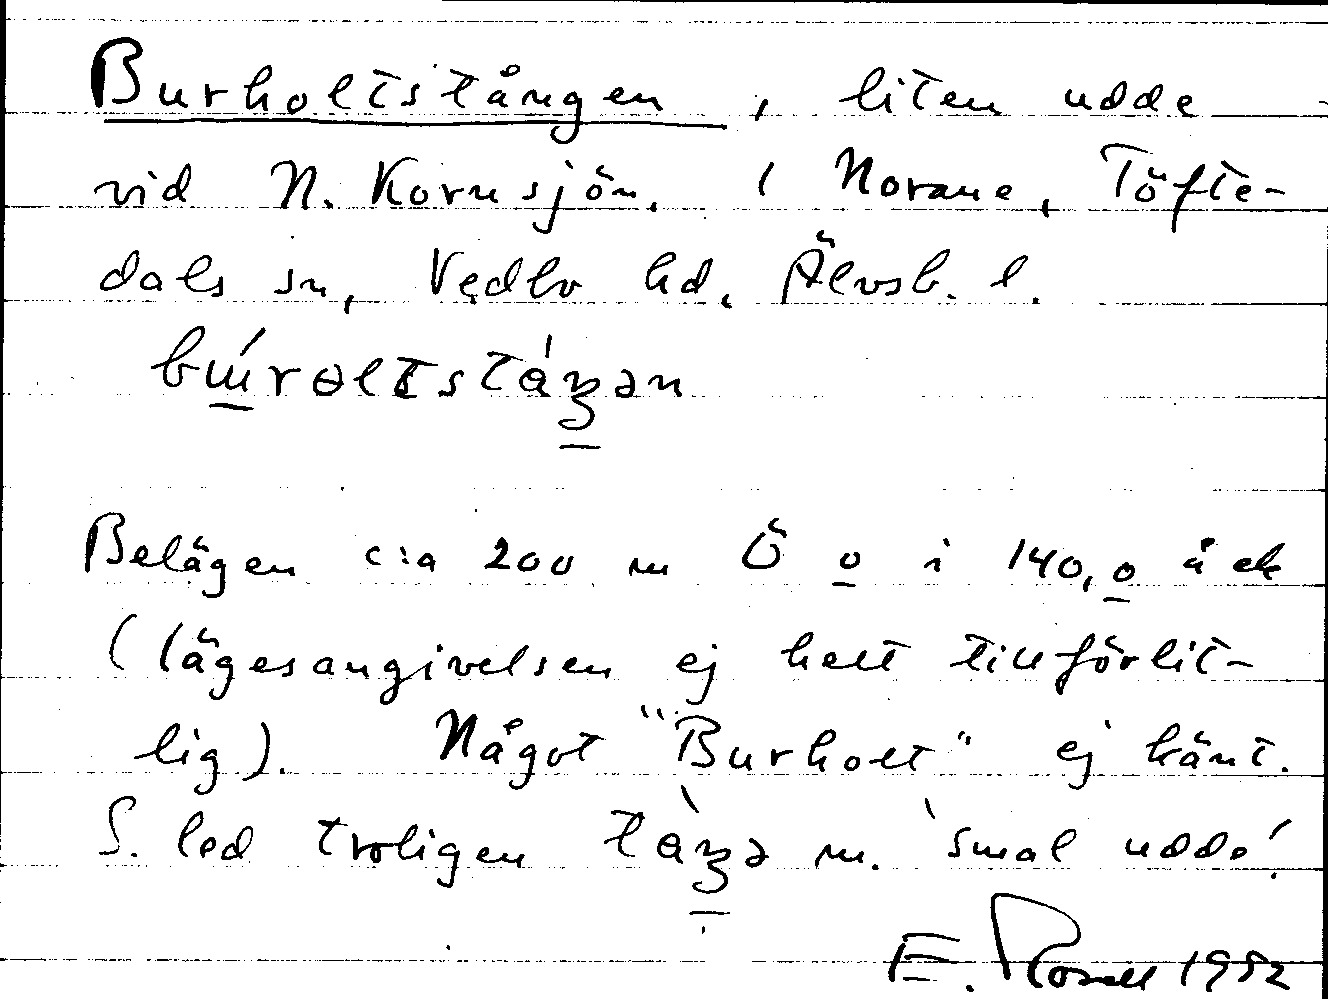 Burholtstången, liten udde
vid N. Kornsjön, i Norane, Töfte-
dals sn, Vedbo hd, Älvsb. l.
Belägen c:a 200 m Ö o i 140,0 å ek
(lägesangivelsen ej helt tillförlit-
lig). Något "Burholt" ej känt.
S. led troligen m. 'smal udde'.
E. Rosell 1952